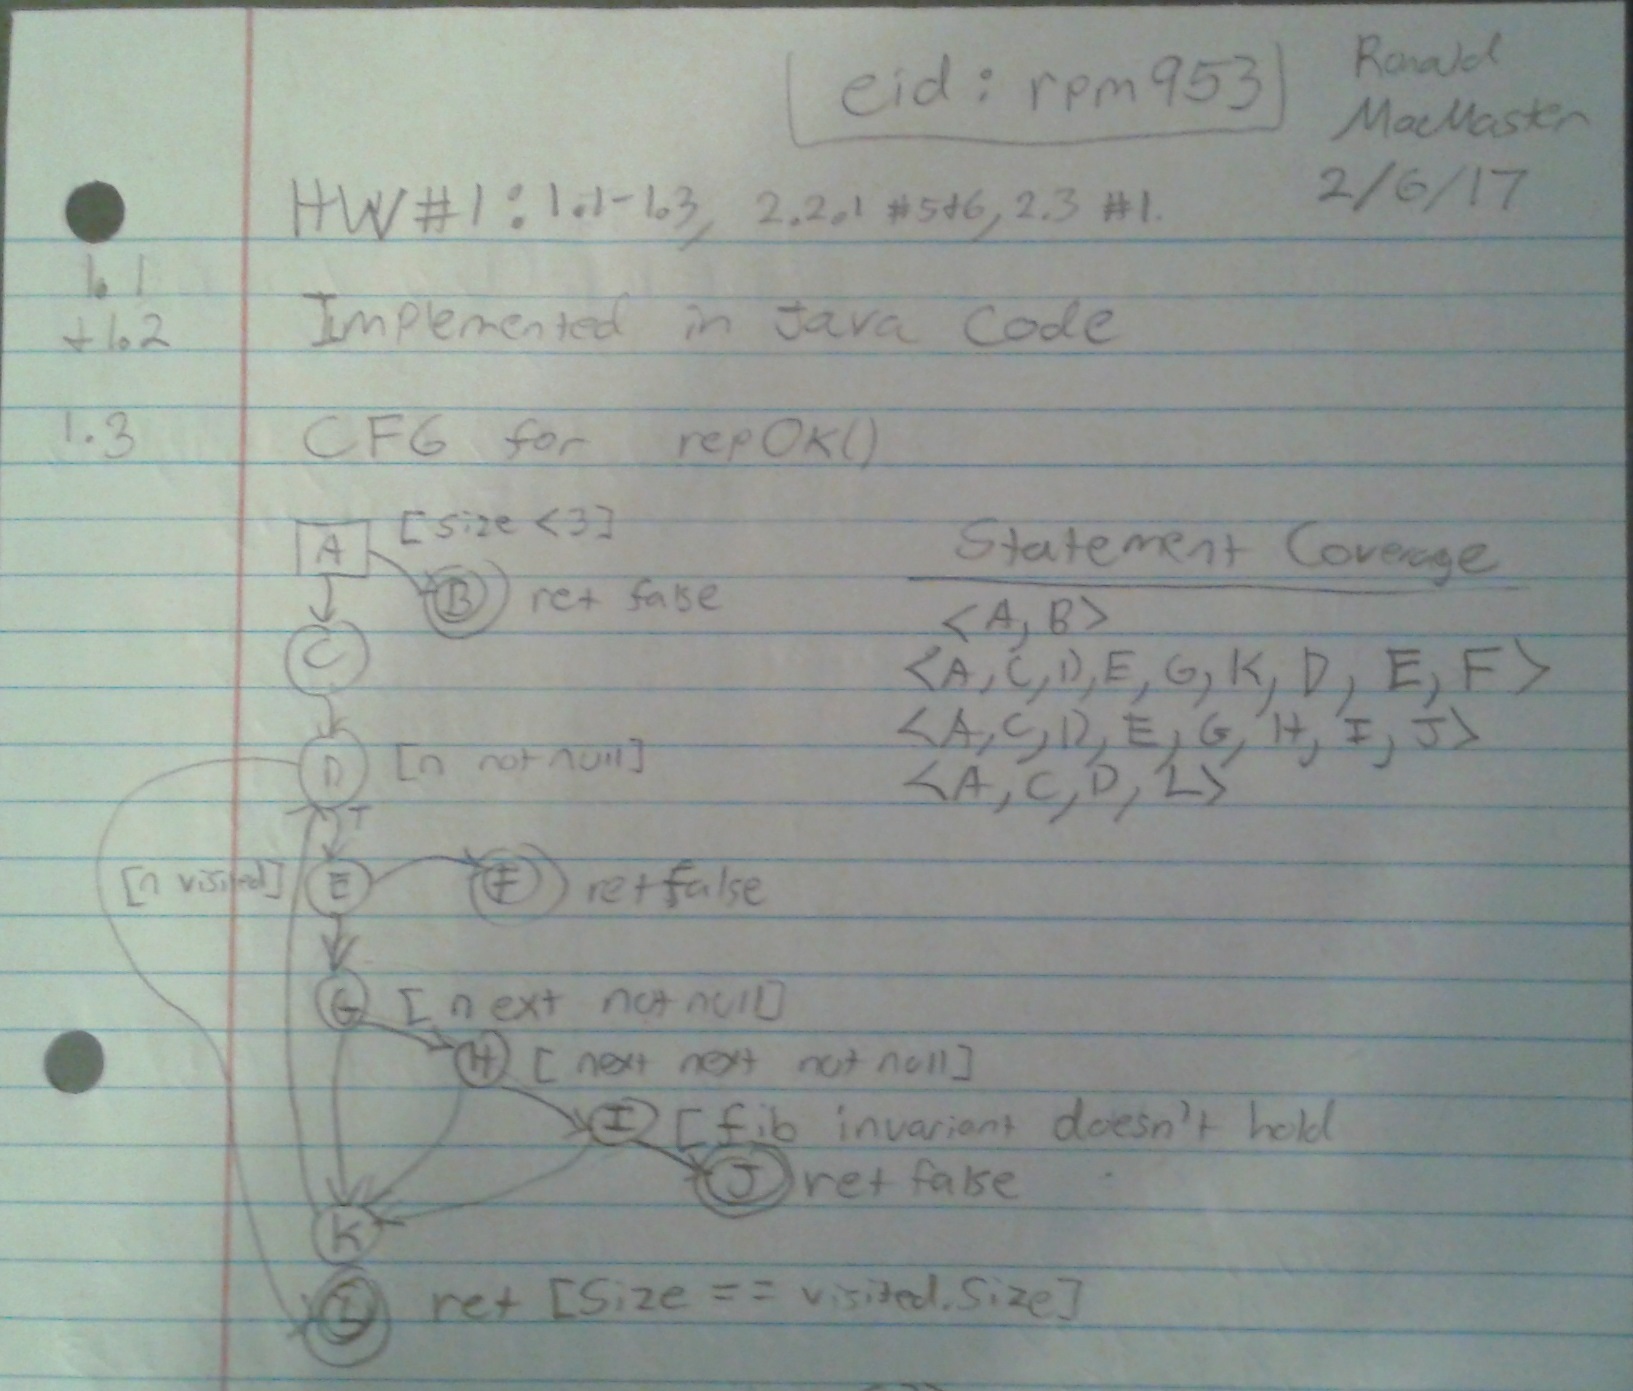 eid: rpm953
Ronald
MacMaster
2/6/17
HW#1: 1.1-1.3, 2.2.1 #5+6, 2.3 #1.
1.1
+1.2 Implemented in Java Code
1.3 CFG for repOk()
A [size <3]
B ret false
C
D [n not null]
T
[n visited] E F ret false
G [next not null]
H [next next not null]
I [fib invariant doesn't hold
J ret false
K
L ret [Size == visited.Size]
Statement Coverage
<A, B>
<A, C, D, E, G, K, D, E, F>
<A, C, D, E, G, H, I, J>
<A, C, D, L>